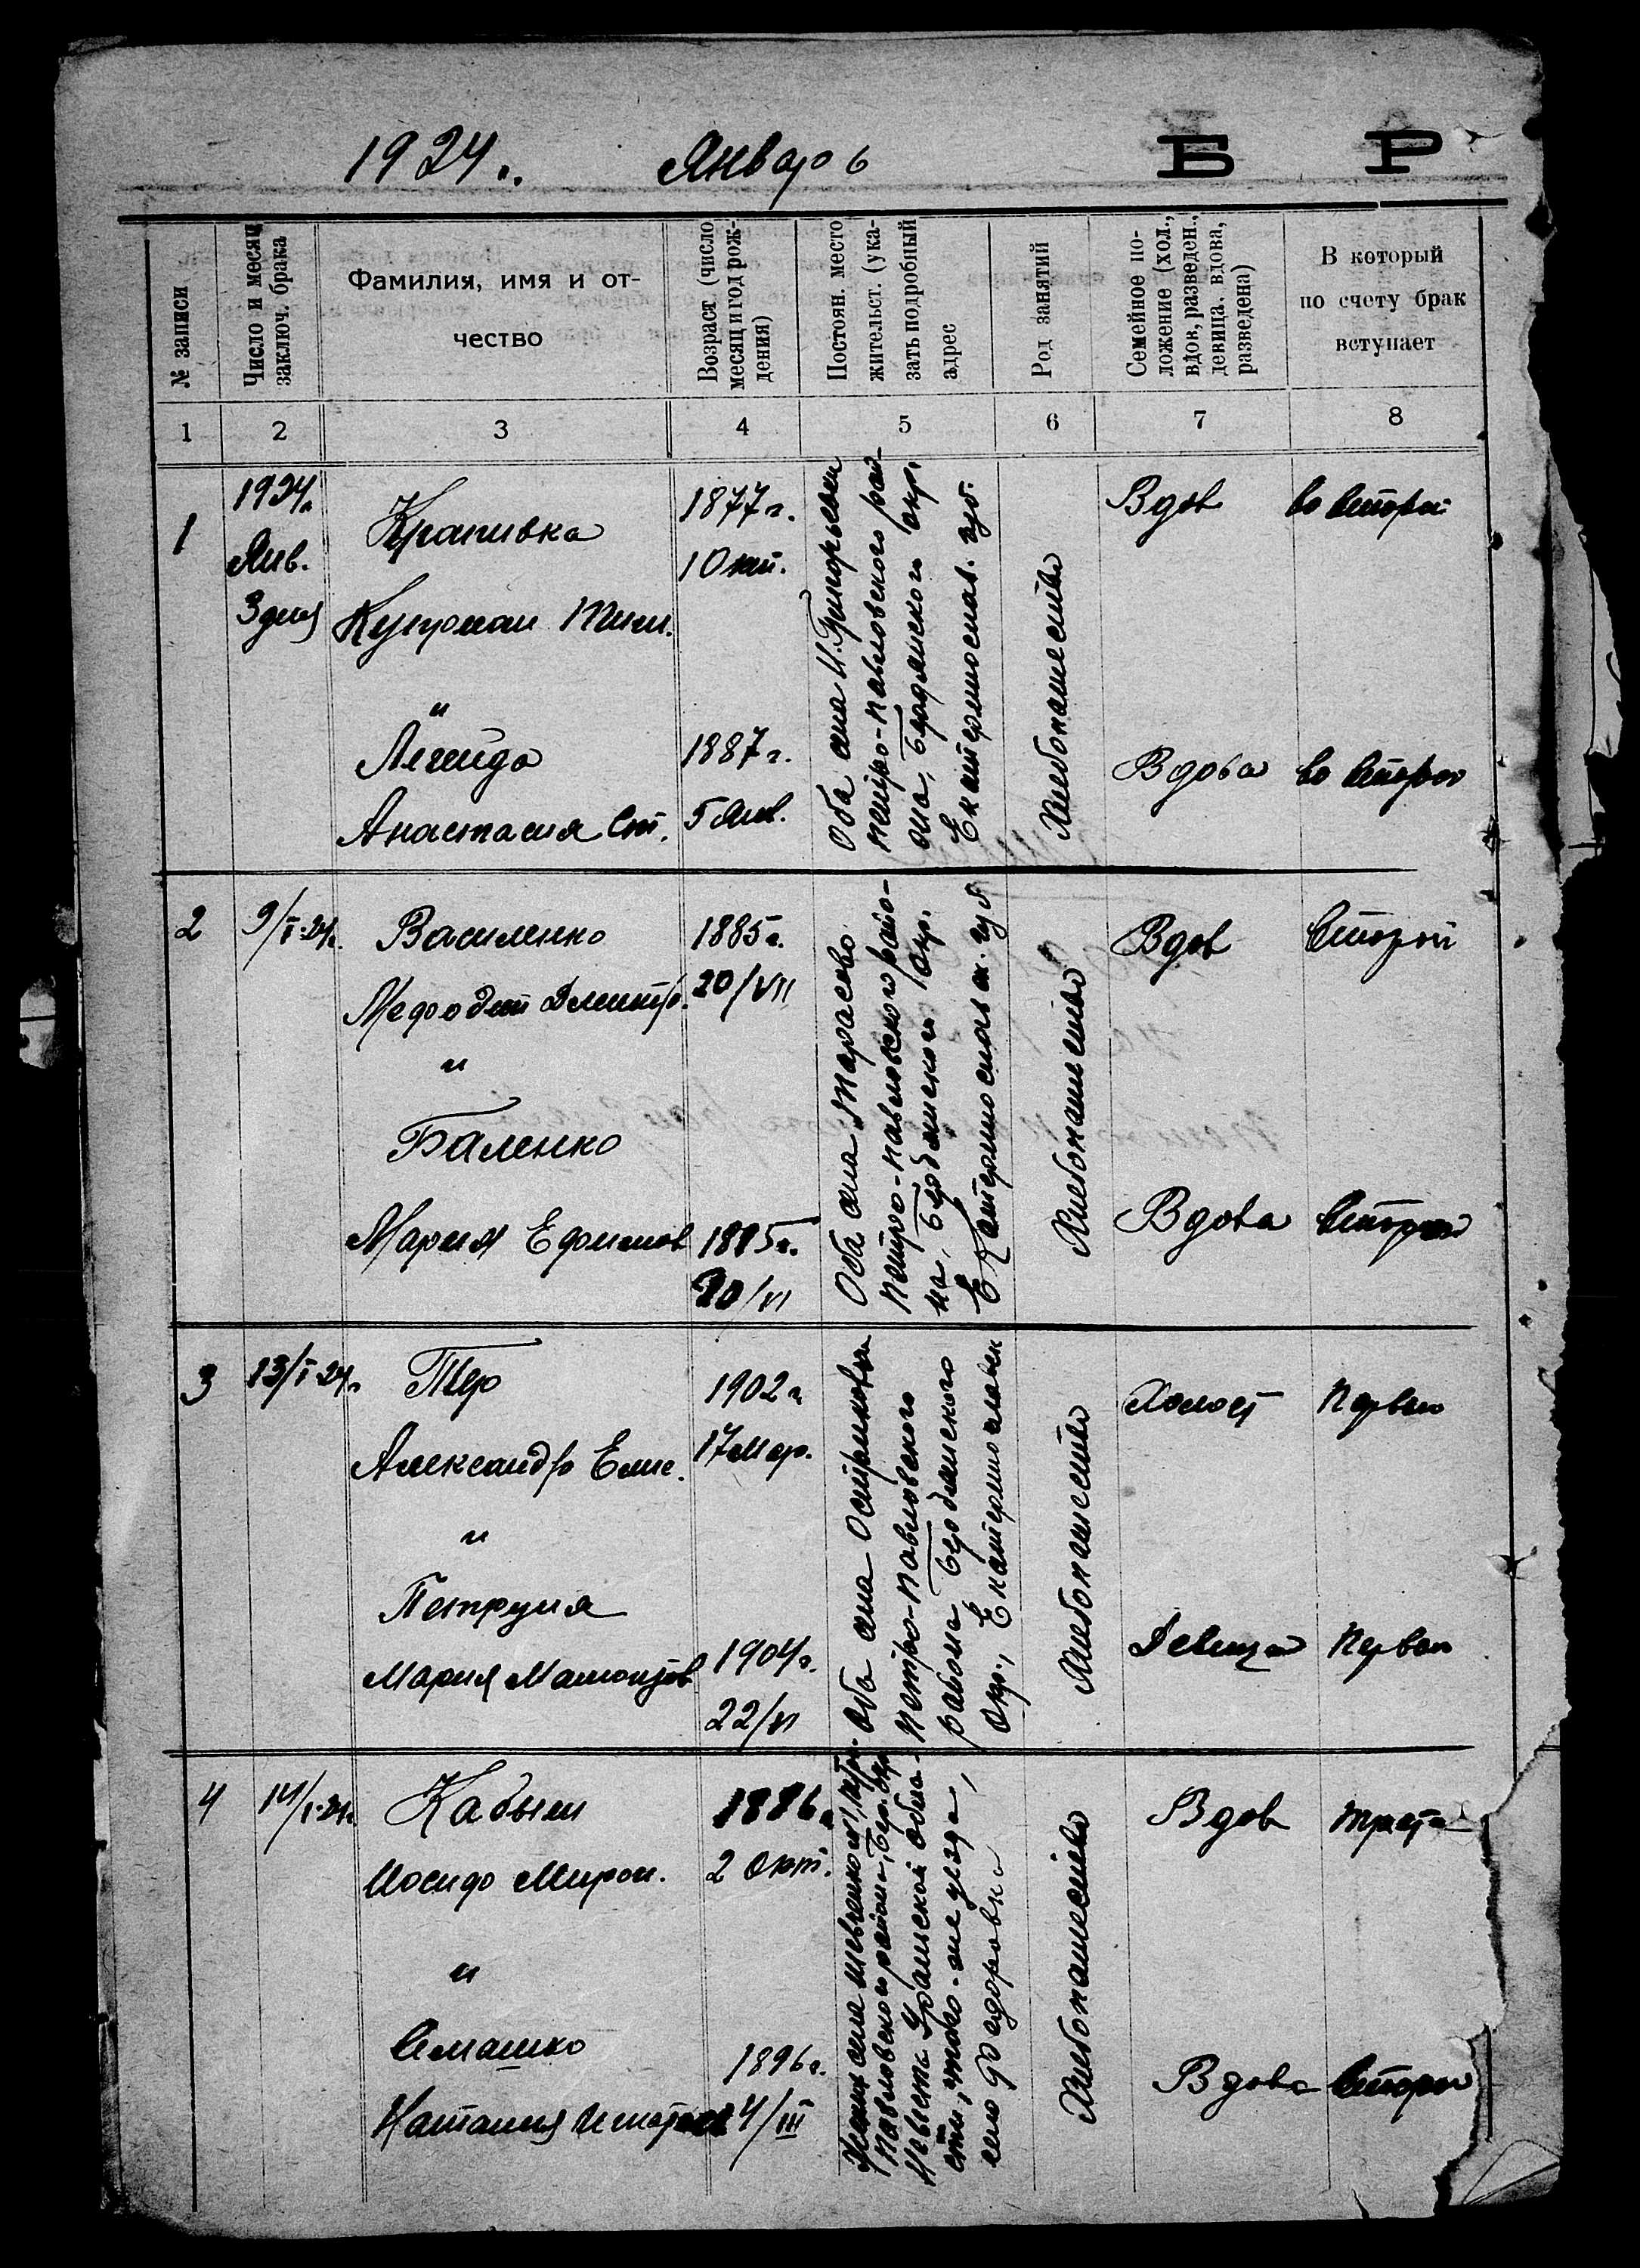 1924 г. Январь
Б Р
№ записи
Число и месяц
заключ. брака
Фамилия, имя и от-
чество
Возраст (число
месяц и год рож-
дения)
Постоян. место
жительст. (ука-
зать подробный
адрес
Род занятий
Семейное по-
ложение (хол.,
вдов, разведен.,
девица, вдова,
разведена)
В который
по счету брак
вступает
1 2 3 4 5 6 7 8
1
1924 г.
Янв.
3 дня
Крапивка
Тим.
и
Легейда
Анастасия Ст.
1877 г.
1887 г.
5 Янв.
Оба села Н. Григорьевки
Петро-Павловского рай-
она, Бердянского окр.
Екатеринослав. губ.
Хлебопашество
Вдов
во второй
Вдова
во второй
2
9/I-24 г.
Василенко
Мефодий Дмитр.
и
Баленко
Мария Ефимов
1885 г.
20/VII
20/VI
Оба села Тарасовo
Петро-Павловского райо-
на, Бердянского окр.
Екатеринославск. губ
Хлебопашество
Вдов
Второй
Вдова
Второй
3
13/I-24 г.
Тер
Александр Елис.
и
Петруня
Мария
1902 г.
17 Мар.
1904 г.
22/VI
Оба села
Петро-Павловского
района Бердянского
Окр., Екатеринославск
Хлебопашество
Холост
Первый
Девица
Первый
4
14/I-24 г.
Кабыш
Мирон.
и
Семашко
Наталия
1886 г.
2 Окт.
1896 г.
4/III
Жених села
Павловского района, Бер. окр.
Невеста Уральской обла-
сти, того-же уезда,
село Федоровка
Хлебопашество
Вдов
Вдова
Второй